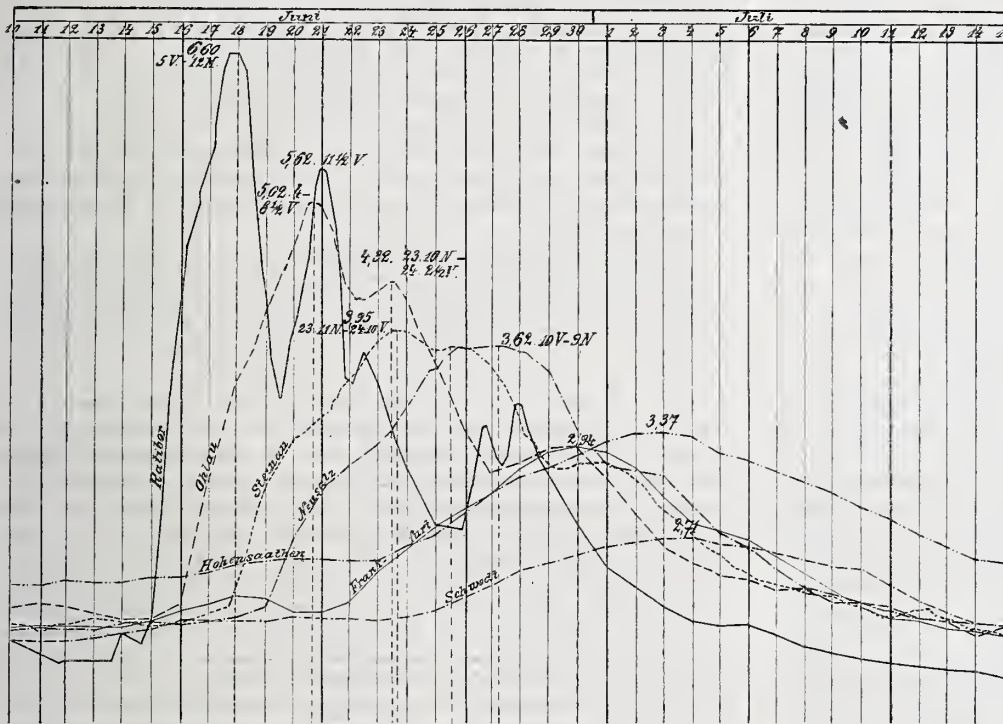 Juni
Juli
10 11 12 13 14 15 16 17 18 19 20 21 22 23 24 25 26 27 28 29 30 1 2 3 4 5 6 7 8 9 10 11 12 13 14
6,60
5 V.-12M.
5,62. 11½ V.
5,02. 4-
8½ V.
4,32. 23. 10 N-
24. 2½ V.
3,95
23. 11 N.-24. 10 V.
3,62. 10 V-9N
3,37
2,94
2,71
Ratibor
Ohlau
Steinau
Neusalz
Hohensaathen
Frank-
furt
Schwedt